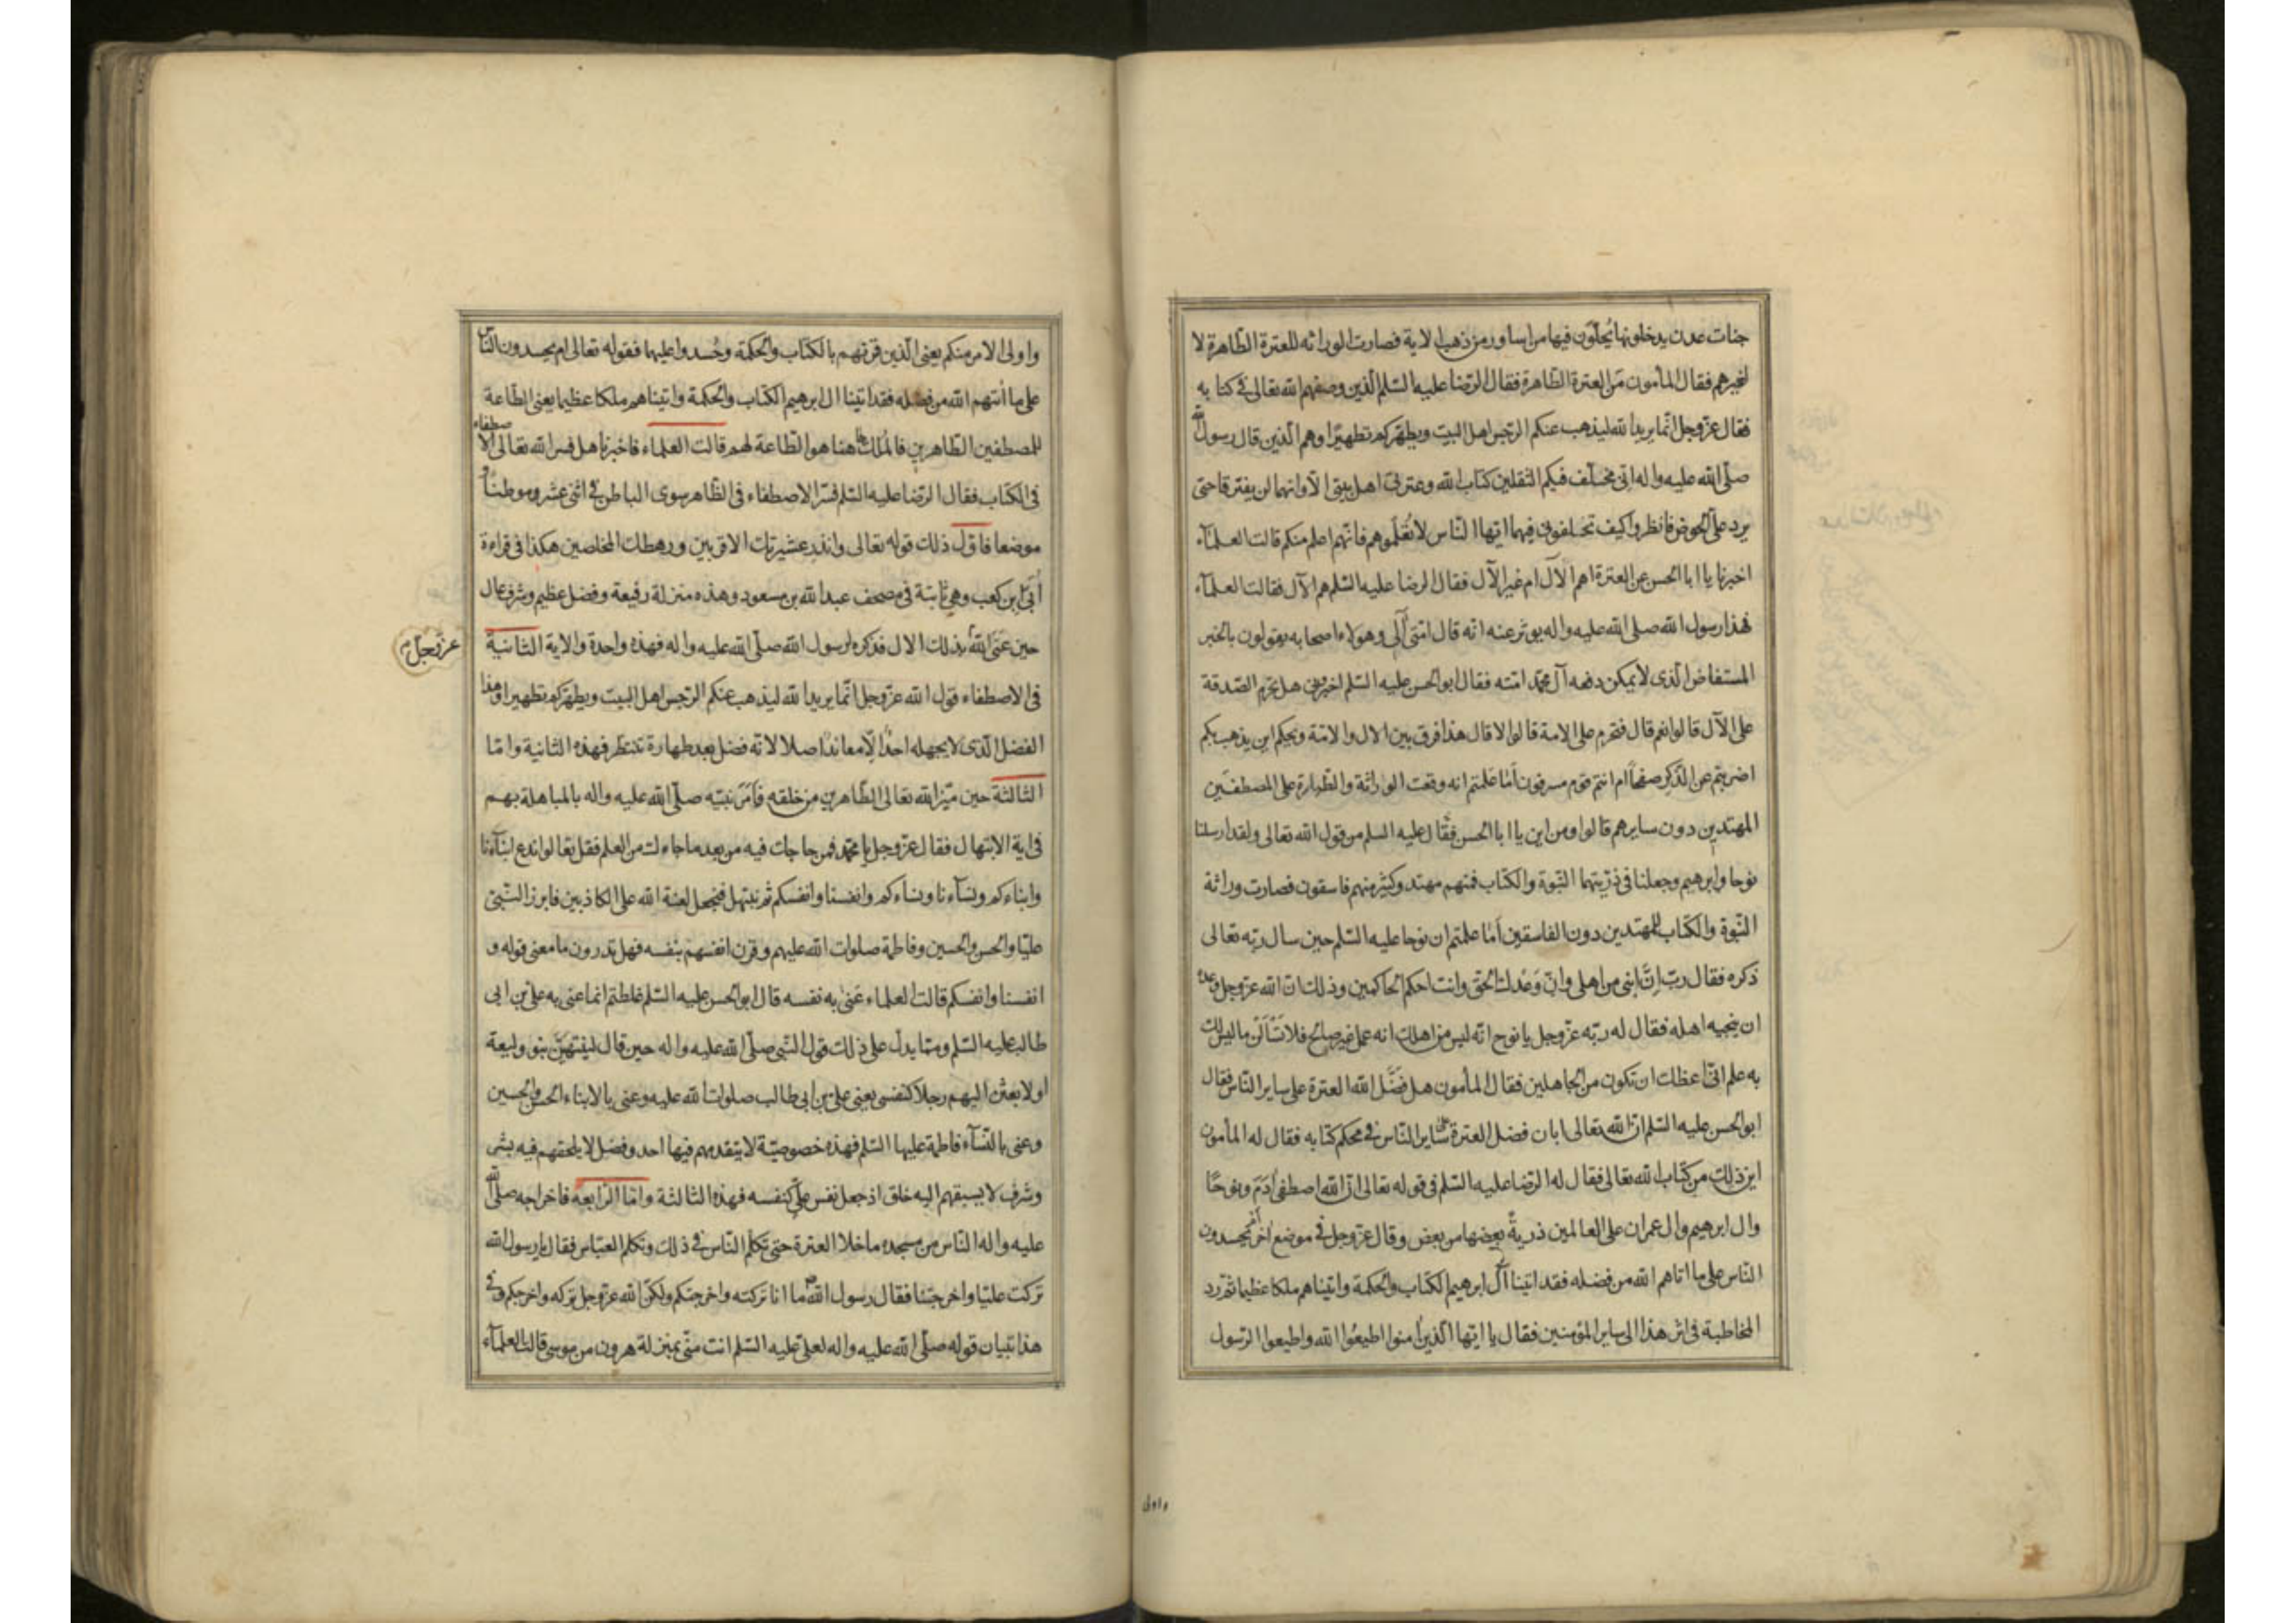 جنات عدن يدخلونها يُحلّون فيها من اساور من ذهب الاية فصارت الوراثه للعترة الطّاهرة لا
لغيرهم فقال المأمون مَن العترة الطّاهرة فقال الرّضا عليه السّلم الّذين وصفهم الله تعالى فى كتابه
فقال عزّ وجل انّما يريد الله ليذهب عنكم الرّجس اهل البيت ويطهّركم تطهيرًا وهم الّذين قال رسول الله
صلّى الله عليه واله انّى مخلّف فيكم الثقلين كتاب الله وعترتى اهل بيتى الا وانهما لن يفترقا حتى
يردا علىّ الحوض فانظروا كيف تخلفونى فيهما ايّها النّاس لا تُعَلّموهم فانّهم اعلم منكم قالت العلمآء
اخبرنا يا ابا الحسن عن العترة اهم الآل ام غير الآل فقال الرضا عليه السّلم هم الآل فقالت العلمآء
فهذا رسول الله صلى الله عليه واله يوثر عنه انّه قال امّتى آلى وهولاء اصحابه يقولون بالخبر
المستفاض الّذى لا يمكن دفعه آل محمّد امّته فقال ابو الحسن عليه السّلم اخبرونى هل تحرم الصّدقة
على الآل قالوا نعم قال فتحرم على الامة قالوا لا قال هذا فرق بين الال والامّة ويحكم اين يذهب بكم
اضربتم عن الذّكر صفحاً ام انتم قوم مسرفون اَمَا عَلمتم انه وقعت الوراثة والطّهارة على المصطفَين
المهتدين دون سايرهم قالوا ومن اين يا ابا الحسن فقال عليه السلم من قول الله تعالى ولقد ارسلنا
نوحا وابرهيم وجعلنا فى ذرّيتهما النّبوة والكتاب فمنهم مهتد وكثير منهم فاسقون فصارت وراثة
النّبوة والكتاب للمهتدين دون الفاسقين اَمَا علمتم ان نوحا عليه السّلم حين سال ربّه تعالى
ذكره فقال ربّ اِنَّ ابنى من اهلى وانّ وَعْدك الحقّ وانت احكم الحاكمين وذلك انّ الله عزّ وجل وعده
ان ينجيه اهله فقال له ربّه عزّ وجل يا نوح انّه ليس من اهلك انه عمل غير صالح فلا تَسْاَلْن ما ليس لك
به علم انّى اعظك ان تكون من الجاهلين فقال المأمون هل فَضَّل الله العترة على ساير النّاس فقال
ابو الحسن عليه السّلم انّ الله تعالى ابان فضل العترة على ساير النّاس فى محكم كتابه فقال له المأمون
اين ذلك من كتاب الله تعالى فقال له الرّضا عليه السّلم فى قوله تعالى انّ الله اصطفى اٰدَم ونوحًا
وال ابرهيم وال عمران على العالمين ذريةً بعضها من بعض وقال عزّ وجل فى موضع اخر ام يحسدون
النّاس على ما اتاهم الله من فضله فقد اتينا آل ابرهيم الكتاب والحكمة واتيناهم ملكا عظيما ثمّ ردّ
المخاطبة فى اثر هذا الى ساير المؤمنين فقال يا ايّها الّذين امنوا اطيعُوا الله واطيعوا الرّسول
واولى
واولى الامر منكم يعنى الّذين قرنهم بالكتاب والحكمة وحُسدوا عليهما فقوله تعالى ام يحسدون النّاس
على ما اٰتيهم الله من فضله فقد اتينا ال ابرهيم الكتاب والحكمة واتيناهم ملكا عظيما يعنى الطّاعة
للمصطفين الطّاهرين فالمُلك هاهنا هو الطّاعة لهم قالت العلماء فاخبرنا هل فسر الله تعالى الاصطفاء
فى الكتاب فقال الرّضا عليه السّلم فسّر الاصطفاء فى الظّاهر سوى الباطن فى اثنى عشر موطنًا و
موضعا فاوّل ذلك قوله تعالى وانذر عشيرتك الاقربين ورهطك المخلصين هكذا فى قراءة
اُبىّ بن كعب وهى ثابتة فى مصحف عبد الله بن مسعود وهذه منزلة رفيعة وفضل عظيم وشرف عال
حين عَنَى الله بذلك الال فذكره لرسول الله صلّى الله عليه واله فهذه واحدة والاية الثانية
عزّ وجلّ
فى الاصطفاء قول الله عزّ وجل انّما يريد الله ليذهب عنكم الرّجس اهل البيت ويطهّركم تطهيرا وهذا
الفضل الّذى لا يجهله احدٌ الّا معاند اصلا لانّه فضل بعد طهارة تنتظر فهذه الثانية وامّا
الثالثة حين ميّز الله تعالى الطّاهرين من خلقه فاَمَرَ نبيّه صلّى الله عليه واله بالمباهلة بهم
فى اية الابتهال فقال عزّ وجل يا محمّد فمن حاجك فيه من بعد ما جاءك من العلم فقل تعالوا ندع ابنآءنا
وابناءكم ونسآءنا ونساءكم وانفسنا وانفسكم ثم نبتهل فنجعل لعنة الله على الكاذبين فابرز النّبىّ
عليّا والحسن والحسين وفاطمة صلوات الله عليهم وقرن انفسهم بنفسه فهل تدرون ما معنى قوله و
انفسنا وانفسكم قالت العلماء عَنى به نفسه قال ابو الحسن عليه السّلم غلطتم انما عنى به على بن ابى
طالب عليه السّلم وممّا يدلّ على ذلك قول النّبى صلّى الله عليه واله حين قال لينتهيَنّ بنو وليعة
او لابعثن اليهم رجلا كنفسى يعنى على بن ابى طالب صلوات الله عليه وعنى بالابناء الحسن والحسين
وعنى بالنّسآء فاطمة عليها السّلم فهذه خصوصيّة لا يتقدمهم فيها احد وفضل لا يلحقهم فيه بشر
وشرف لا يسبقهم اليه خلق اذ جعل نفس علىّ كنفسه فهذه الثالثة وامّا الرّابعة فاخراجه صلّى الله
عليه واله النّاس من مسجده ما خلا العترة حتى تكلّم النّاس فى ذلك وتكلم العبّاس فقال يا رسول الله
تركت عليّا واخرجتنا فقال رسول الله ص ما انا تركته واخرجتكم ولكنّ الله عزّ وجل تركه واخرجكم وفى
هذا تبيان قوله صلّى الله عليه واله لعلىّ عليه السّلم انت منّى بمنزلة هرون من موسى قالت العلمآء